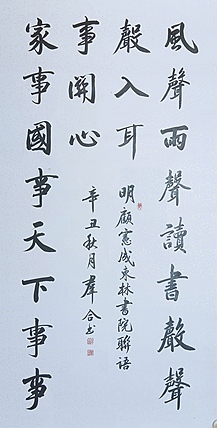 風聲雨聲讀書聲聲
聲入耳
家事國事天下事事
事關心
明顧憲成東林書院聯語
辛丑秋月群合书